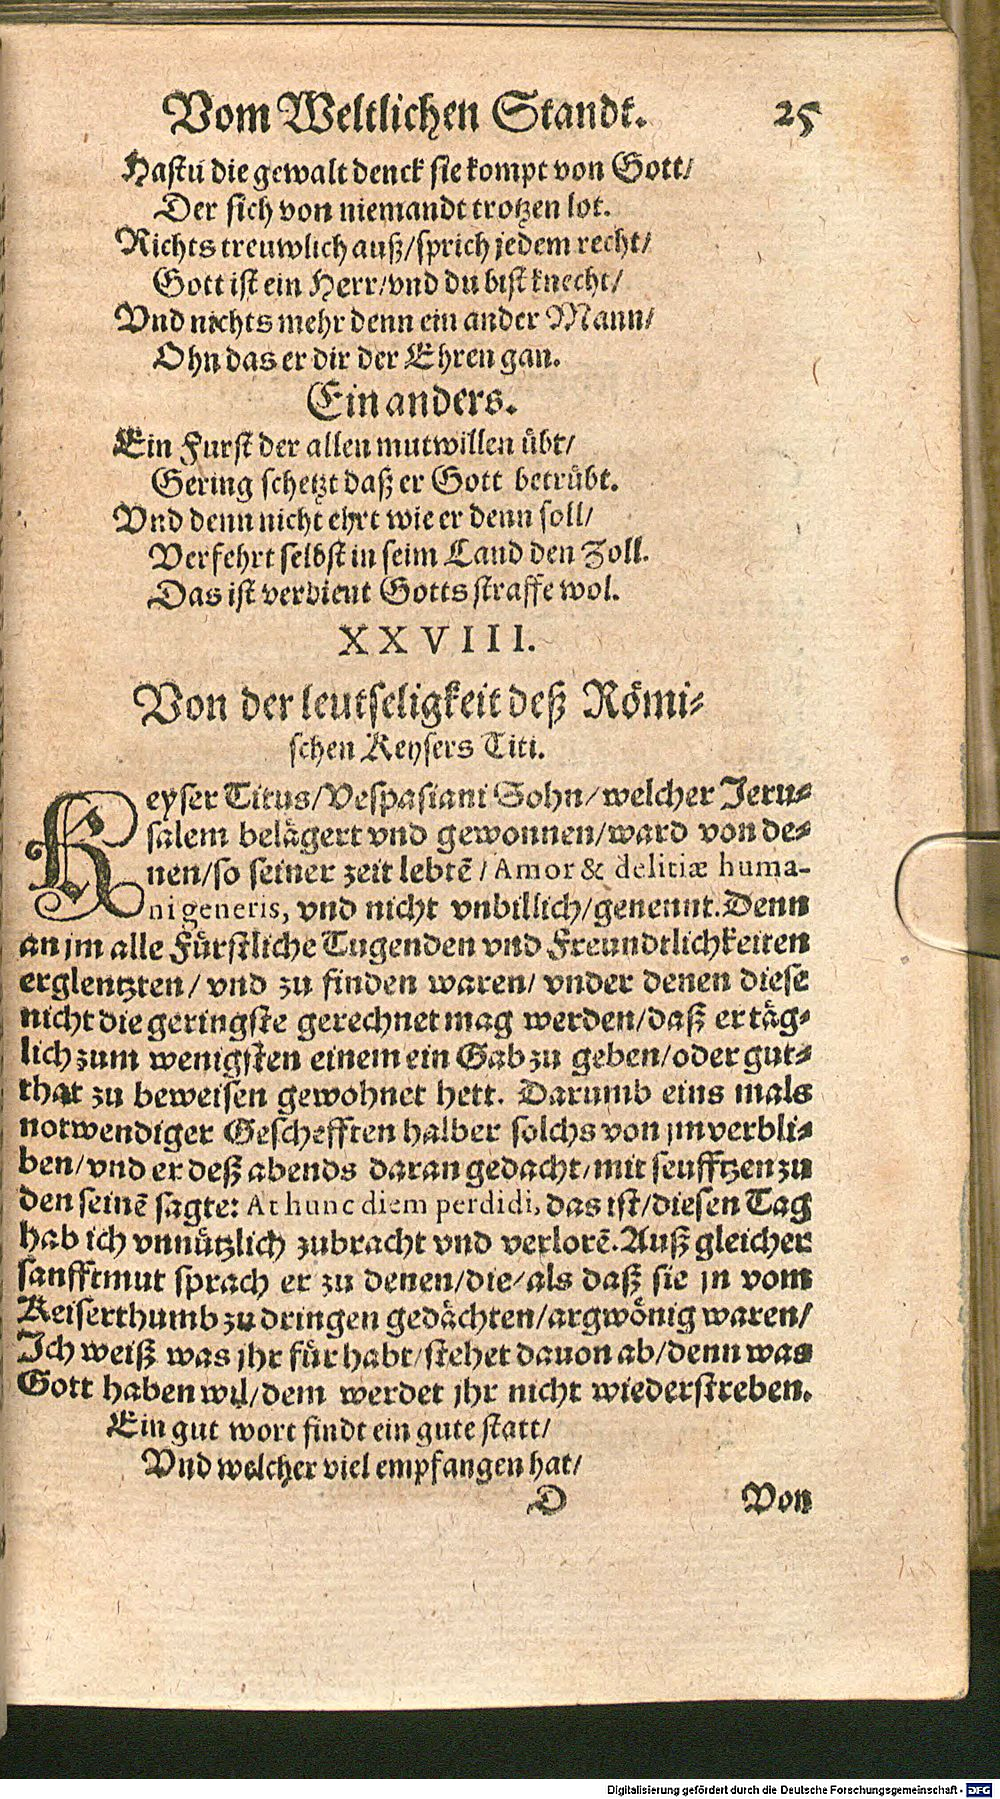 Vom Weltlichen Standt. 25
Hastu die gewalt denck sie kompt von Gott/
Der sich von niemandt trotzen lot.
Richts treuwlich auß/sprich jedem recht/
Gott ist ein Herr/vnd du bist knecht/
Vnd nichts mehr denn ein ander Mann/
Ohn das er dir der Ehren gan.
Ein anders.
Ein Furst der allen mutwillen übt/
Gering schetzt daß er Gott betrübt.
Vnd denn nicht ehrt wie er denn soll/
Verfehrt selbst in seim Land den Zoll.
Das ist verdient Gotts straffe wol.
XXVIII.
Von der leutseligkeit deß Römi-
schen Keysers Titi.
Keyser Titus/Vespasiani Sohn/welcher Jeru-
salem belägert vnd gewonnen/ward von de-
nen/so seiner zeit lebtē/Amor & delitiæ huma-
ni generis, vnd nicht vnbillich/genennt. Denn
an jm alle Fürstliche Tugenden vnd Freundtlichkeiten
erglentzten/ vnd zu finden waren/ vnder denen diese
nicht die geringste gerechnet mag werden/daß er täg-
lich zum wenigsten einem ein Gab zu geben/oder gut-
that zu beweisen gewohnet hett. Darumb eins mals
notwendiger Geschefften halber solchs von jm verbli-
ben/vnd er deß abends daran gedacht/mit seufftzen zu
den seinē sagte: At hunc diem perdidi, das ist/diesen Tag
hab ich vnnützlich zubracht vnd verlorē. Auß gleicher
sanfftmut sprach er zu denen/die/als daß sie jn vom
Keiserthumb zu dringen gedächten/argwönig waren/
Ich weiß was jhr für habt/stehet dauon ab/denn was
Gott haben wil/dem werdet jhr nicht wiederstreben.
Ein gut wort findt ein gute statt/
Vnd welcher viel empfangen hat/
D Von
Digitalisierung gefördert durch die Deutsche Forschungsgemeinschaft - DFG